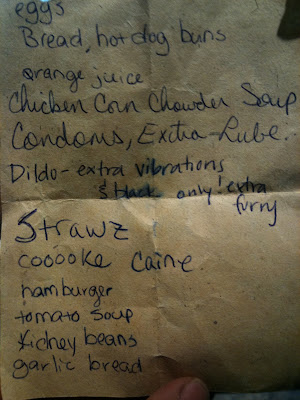 eggs
Bread, hot dog buns
orange juice
Chicken Corn Chowder Soup
Condoms, Extra-Lube.
Dildo - extra vibrations
& black only! extra
furry
Strawz
cooooke caine
hamburger
tomato soup
Kidney beans
garlic bread